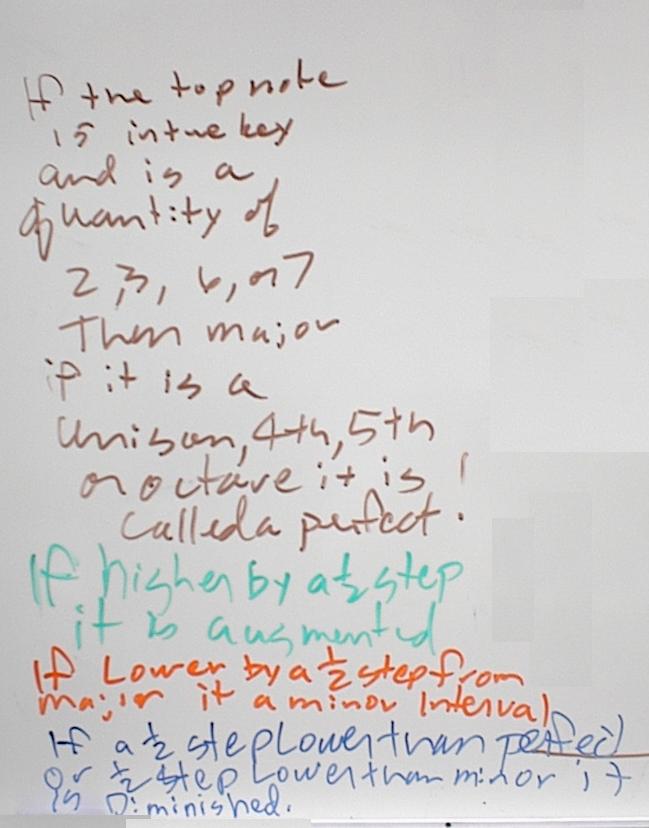 If the top note
is in the key
and is a
quantity of
2,3, 6, or 7
Then major
if it is a
unison, 4th, 5th
or octave it is
called a perfect!
If higher by a ½ step
it is augmented
If Lower by a ½ step from
major it a minor Interval
If a ½ step Lower than perfect
or ½ step Lower than minor it
is Diminished.